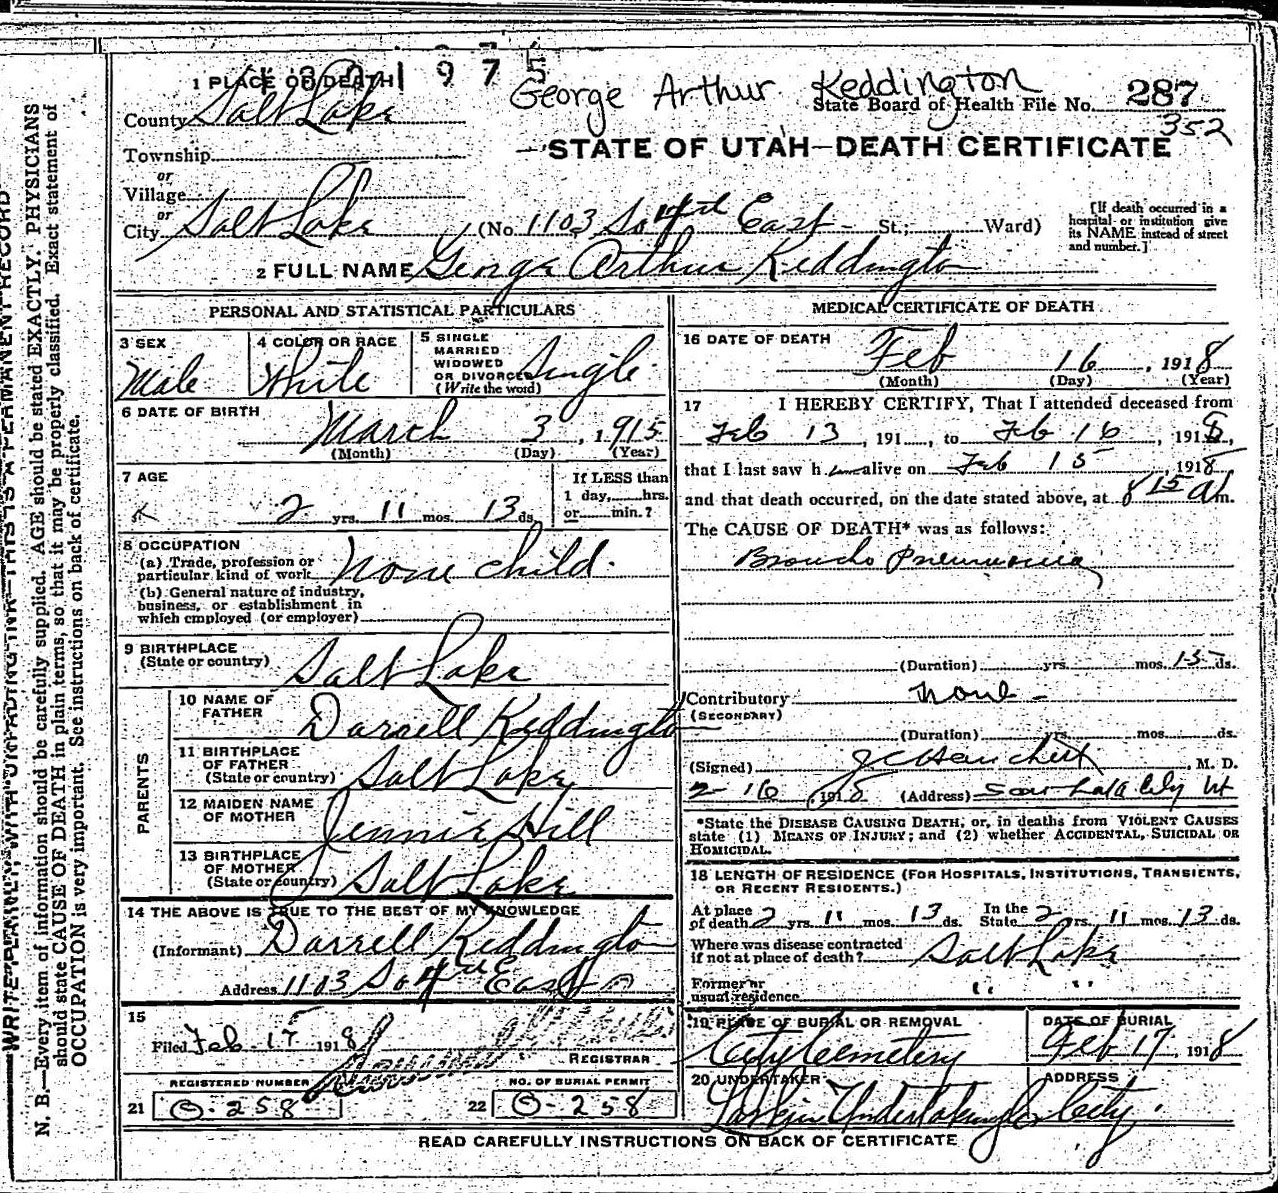 1975
George Arthur Keddington
1 PLACE OF DEATH
State Board of Health File No. 287
352
County Salt Lake
STATE OF UTAH—DEATH CERTIFICATE
Township
or
Village
or
City Salt Lake (No. 1103 So 4th East St.; Ward)
[If death occurred in a
hospital or institution give
its NAME instead of street
and number.]
2 FULL NAME George Arthur Keddington
PERSONAL AND STATISTICAL PARTICULARS
3 SEX
Male
4 COLOR OR RACE
White
5 SINGLE
MARRIED
WIDOWED
OR DIVORCED
(Write the word)
Single
6 DATE OF BIRTH
March 3, 1915
(Month) (Day) (Year)
7 AGE
2 yrs. 11 mos. 13 ds.
If LESS than
1 day, hrs.
or min.?
8 OCCUPATION
(a) Trade, profession or
particular kind of work None child.
(b) General nature of industry,
business, or establishment in
which employed (or employer)
9 BIRTHPLACE
(State or country) Salt Lake
PARENTS
10 NAME OF
FATHER Darrell Keddington
11 BIRTHPLACE
OF FATHER
(State or country) Salt Lake
12 MAIDEN NAME
OF MOTHER Jennie Hill
13 BIRTHPLACE
OF MOTHER
(State or country) Salt Lake
14 THE ABOVE IS TRUE TO THE BEST OF MY KNOWLEDGE
(Informant) Darrell Keddington
Address 1103 So 4th East
15
Filed Feb 17 1918
REGISTRAR
REGISTERED NUMBER
21 O-258
NO. OF BURIAL PERMIT
22 O-258
MEDICAL CERTIFICATE OF DEATH
16 DATE OF DEATH
Feb 16, 1918
(Month) (Day) (Year)
17 I HEREBY CERTIFY, That I attended deceased from
Feb 13, 191, to Feb 16, 1918,
that I last saw h alive on Feb 15, 1918
and that death occurred, on the date stated above, at 8 15 a m.
The CAUSE OF DEATH* was as follows:
Broncho Pneumonia
(Duration) yrs. mos. 15 ds.
Contributory None
(SECONDARY)
(Duration) yrs. mos. ds.
(Signed) M. D.
2-16, 1918 (Address) Salt Lake City Ut
*State the DISEASE CAUSING DEATH, or, in deaths from VIOLENT CAUSES
state (1) MEANS OF INJURY; and (2) whether ACCIDENTAL, SUICIDAL OR
HOMICIDAL.
18 LENGTH OF RESIDENCE (FOR HOSPITALS, INSTITUTIONS, TRANSIENTS,
OR RECENT RESIDENTS.)
At place
of death 2 yrs. 11 mos. 13 ds. In the
State 2 yrs. 11 mos. 13 ds.
Where was disease contracted
if not at place of death? Salt Lake
Former or
usual residence " "
19 PLACE OF BURIAL OR REMOVAL
City Cemetery
DATE OF BURIAL
Feb 17 1918
20 UNDERTAKER
Larkin Undertaking Co
ADDRESS
City.
READ CAREFULLY INSTRUCTIONS ON BACK OF CERTIFICATE
WRITE PLAINLY, WITH UNFADING INK—THIS IS A PERMANENT RECORD
N. B.—Every item of information should be carefully supplied. AGE should be stated EXACTLY. PHYSICIANS
should state CAUSE OF DEATH in plain terms, so that it may be properly classified. Exact statement of
OCCUPATION is very important. See instructions on back of certificate.